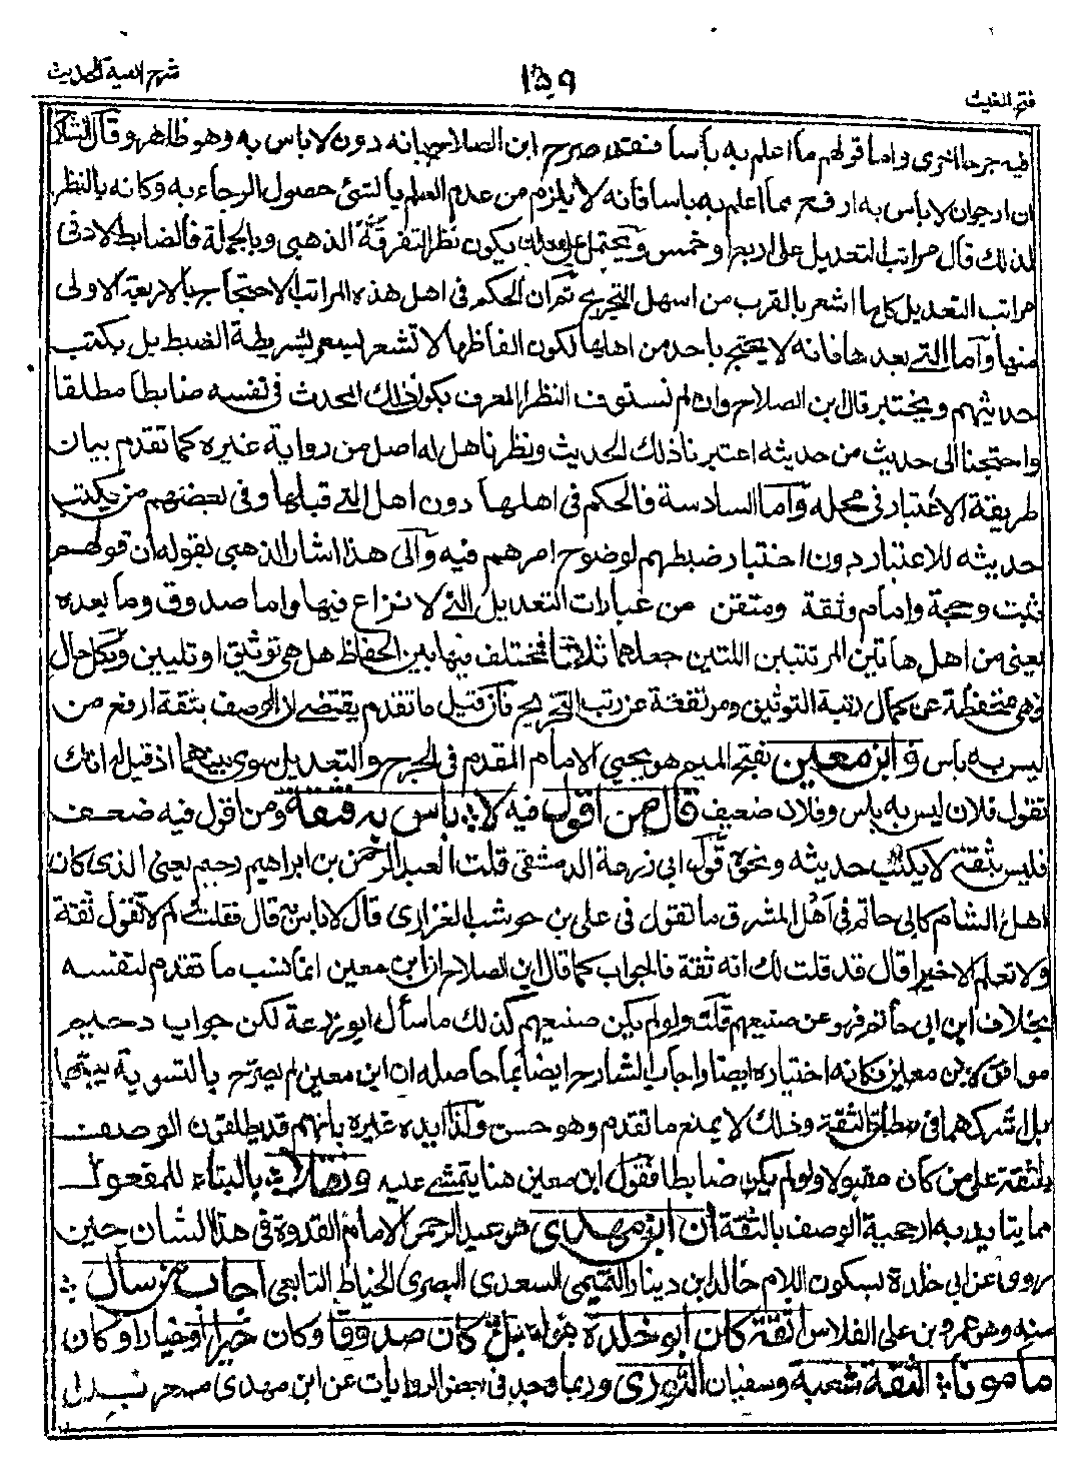 فتح المغيث
١٥٩
شرح الفية الحديث
فيه جرحا اخرى واما قولهم ما اعلم به بأسا فقد صرح ابن الصلاح بانه دون لا باس به وهو ظاهر وقال الشارح
ان ارجوان لا باس به ارفع مما اعلم به باسا فانه لا يلزم من عدم العلم بالشئ حصول الرجاء به وكانه بالنظر
لذلك قال مراتب التعديل على اربع او خمس ويحتمل على ان يكون نظر التفرقة الذهبي وبالجملة فالضابط لادنى
مراتب التعديل كل ما اشعر بالقرب من اسهل التجريح ثم ان الحكم في اهل هذه المراتب الاحتجاج بالاربعة الاولى
منها وآما التي بعدها فانه لا يحتج باحد من اهلها لكون الفاظها لا تشعر بشريطة الضبط بل يكتب
حديثهم ويختبر قال ابن الصلاح وان لم نستوف النظر المعرف بكون ذلك المحدث في نفسه ضابطا مطلقا
واحتجنا الى حديث من حديثه اعتبرنا ذلك الحديث ونظرنا هل له اصل من رواية غيره كما تقدم بيان
طريقة الاعتبار في محله وآما السادسة فالحكم في اهلها دون اهل التي قبلها وفي بعضهم من يكتب
حديثه للاعتبار دون اختبار ضبطهم لوضوح امرهم فيه وآلى هذا اشار الذهبي بقوله ان قولهم
ثبت وحجة وامام وثقة ومتقن من عبارات التعديل التي لا نزاع فيها واما صدوق وما بعده
يعني من اهل هاتين المرتبتين اللتين جعلهما ثلاثا فمختلف فيها بين الحفاظ هل هي توثيق او تليين وبكل حال
فهي منخفظة عن كمال رتبة التوثيق ومرتفعة عن رتب التجريح فآن قيل ما تقدم يقتضي ان الوصف بثقة ارفع من
ليس به بأس وابن معين بفتح الميم هو يحيى الامام المقدم في الجرح والتعديل سوى بينهما اذ قيل له انك
تقول فلان ليس به باس وفلان ضعيف قال من اقول فيه لا باس به فثقة ومن اقول فيه ضعيف
فليس بثقة لا يكتب حديثه ونحوه قول ابي زرعة الدمشقي قلت لعبد الرحمن بن ابراهيم دحيم يعني الذي كان في
اهل الشام كابي حاتم في اهل المشرق ما تقول في علي بن حوشب الفزاري قال لا باس به قال فقلت لم لا تقول ثقة
ولا تعلم الا خيرا قال قد قلت لك انه ثقة فالجواب كما قال ابن الصلاح ان ابن معين انما نسب ما تقدم لنفسه
بخلاف ابن ابي حاتم فهو عن صنيعهم قلت ولو لم يكن صنيعهم كذلك ما سأل ابو زرعة لكن جواب دحيم
موافق لابن معين فكانه اختياره ايضا واجاب الشارح ايضا بما حاصله ان ابن معين لم يصرح بالتسوية بينهما
بل اشركهما في مطلق الثقة وذلك لا يمنع ما تقدم وهو حسن وكذا ايده غيره بانهم قد يطلقون الوصف
بالثقة على من كان مقبولا ولو لم يكن ضابطا فقول ابن معين هنا يتمشى عليه ونقلا بالبناء للمفعول
مما يتايد به ارجحية الوصف بالثقة ان ابن مهدى هو عبد الرحمن الامام القدوة في هذا الشان حين
روى عن ابي خلدة بسكون اللام خالد ابن دينار التميمي السعدي البصري الخياط التابعي اجاب من سأل
منه وهو عمرو بن علي الفلاس اثقة كان ابو خلدة بقوله بل كان صدوقا وكان خيرا او خيارا وكان
مامونا الثقة شعبة وسفيان الثوري وربما وجد في بعض الروايات عن ابن مهدى مسعر بدل